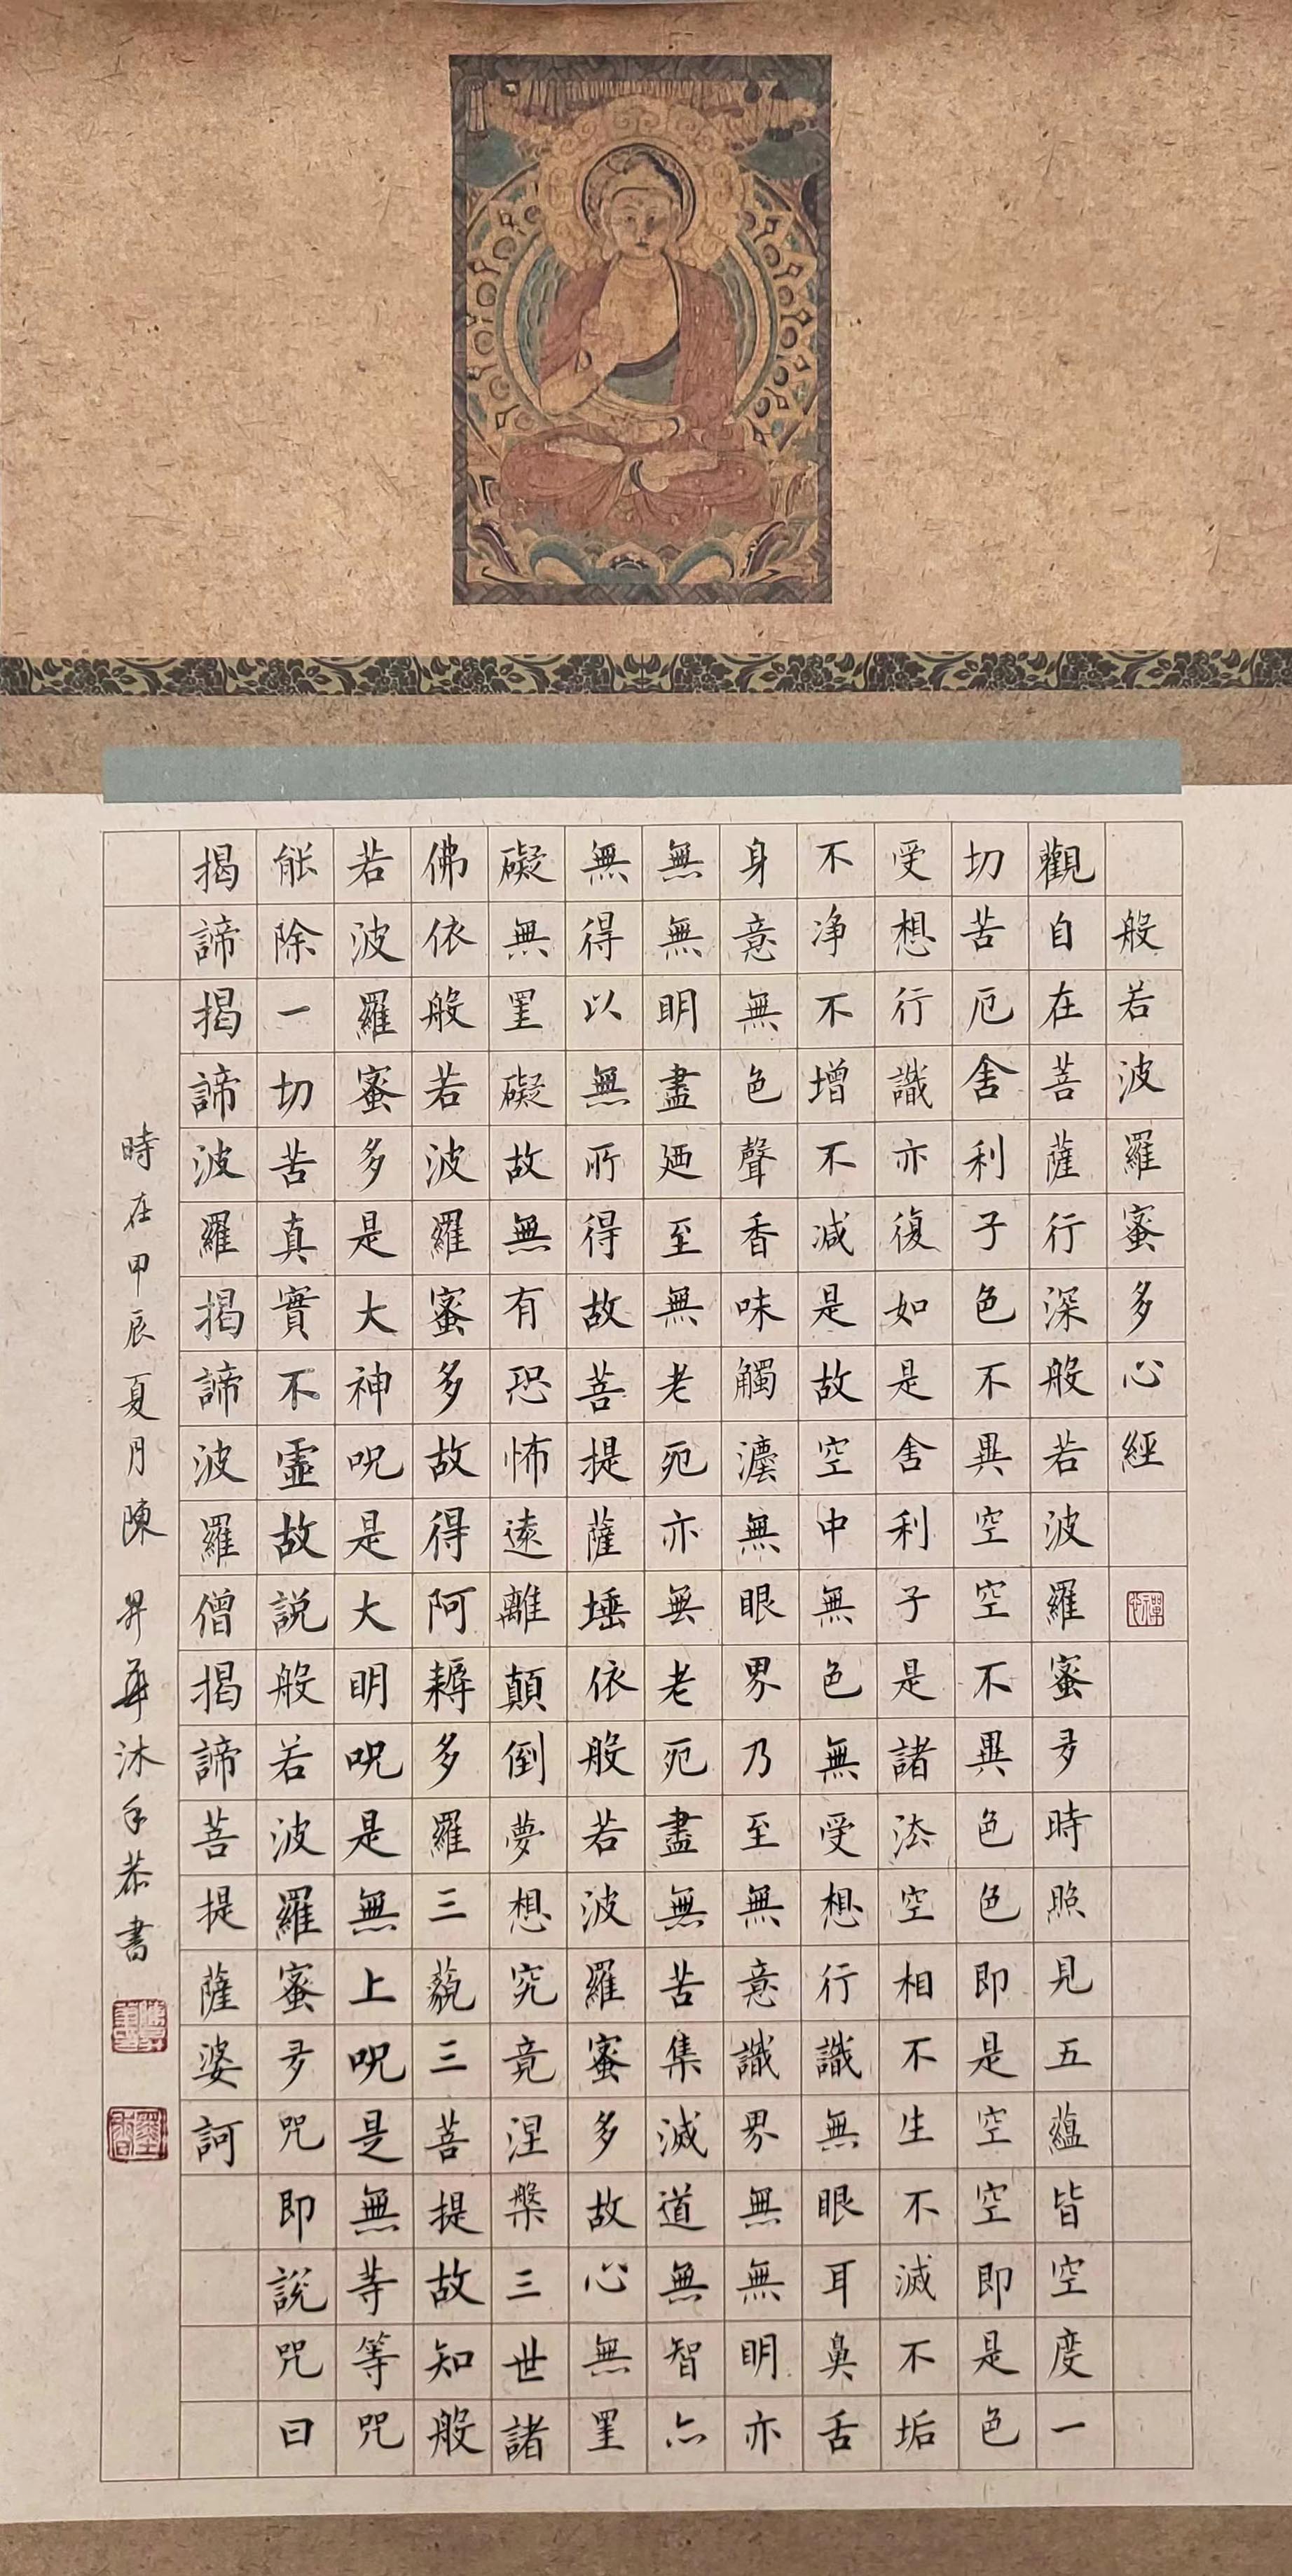 般若波羅蜜多心經
觀自在菩薩行深般若波羅蜜多時照見五蘊皆空度一
切苦厄舍利子色不異空空不異色色即是空空即是色
受想行識亦復如是舍利子是諸法空相不生不滅不垢
不净不增不減是故空中無色無受想行識無眼耳鼻舌
身意無色聲香味觸灋無眼界乃至無意識界無無明亦
無無明盡廼至無老死亦無老死盡無苦集滅道無智亦
無得以無所得故菩提薩埵依般若波羅蜜多故心無罣
礙無罣礙故無有恐怖遠離顛倒夢想究竟涅槃三世諸
佛依般若波羅蜜多故得阿耨多羅三藐三菩提故知般
若波羅蜜多是大神呪是大明呪是無上呪是無等等咒
能除一切苦真實不虛故說般若波羅蜜多咒即說咒曰
揭諦揭諦波羅揭諦波羅僧揭諦菩提薩婆訶
時在甲辰夏月陳昇華沐手恭書